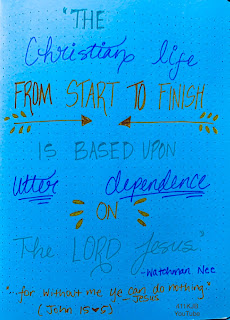 "THE
Christian life
FROM START TO FINISH
IS BASED UPON
utter dependence
ON
The LORD Jesus."
-Watchman Nee
"...for without me ye can do nothing."
-Jesus
(John 15♥5)
YouTube